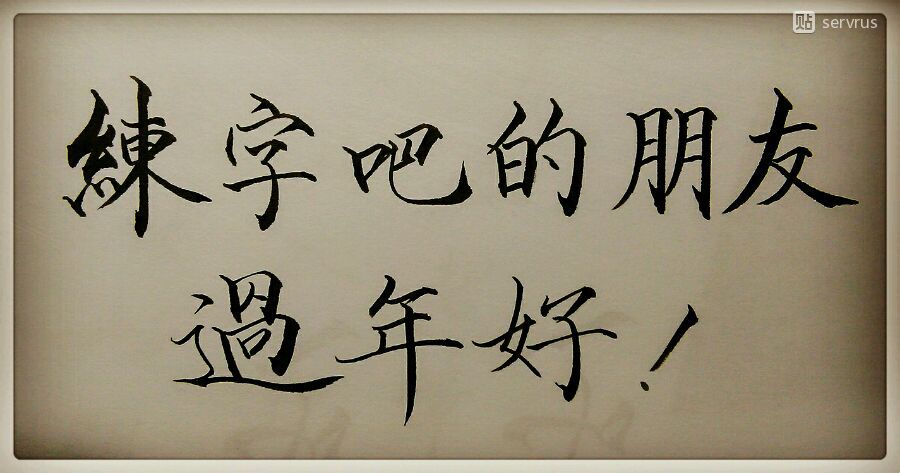 貼 servrus
練字吧的朋友
過年好！